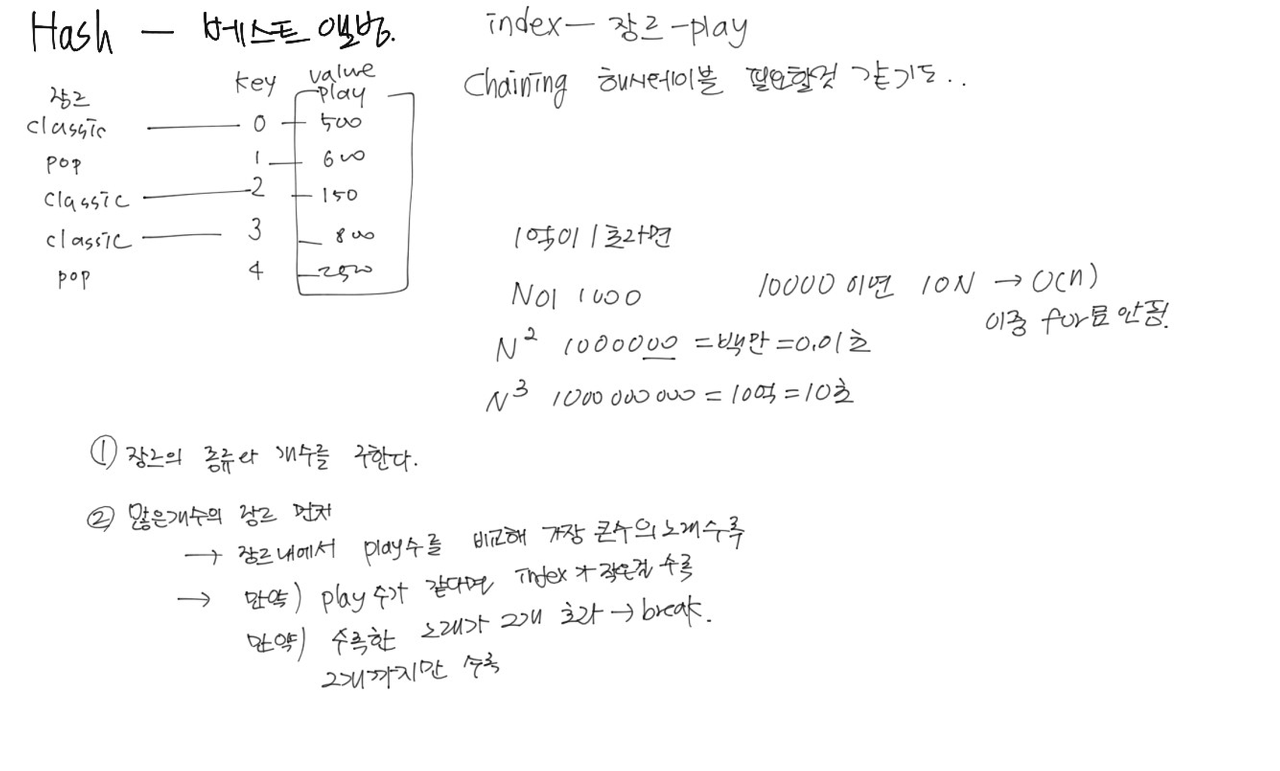 Hash — 베스트 앨범.
index — 장르 - play
Chaining 해시테이블 필요할것 같기도..
장르 key value play
classic 0 500
pop 1 600
classic 2 150
classic 3 800
pop 4 2500
1억이 1초라면
N이 1000
10000 이면 10N → O(n)
이중 for문 안됨.
N² 1000000 = 백만 = 0.01초
N³ 1000 000 000 = 10억 = 10초
① 장르의 종류와 개수를 구한다.
② 많은개수의 장르 먼저
→ 장르내에서 play수를 비교해 가장 큰수의 노래수록
→ 만약) play 수가 같다면 index 작은걸 수록
만약) 수록한 노래가 2개 초과 → break.
2개까지만 수록